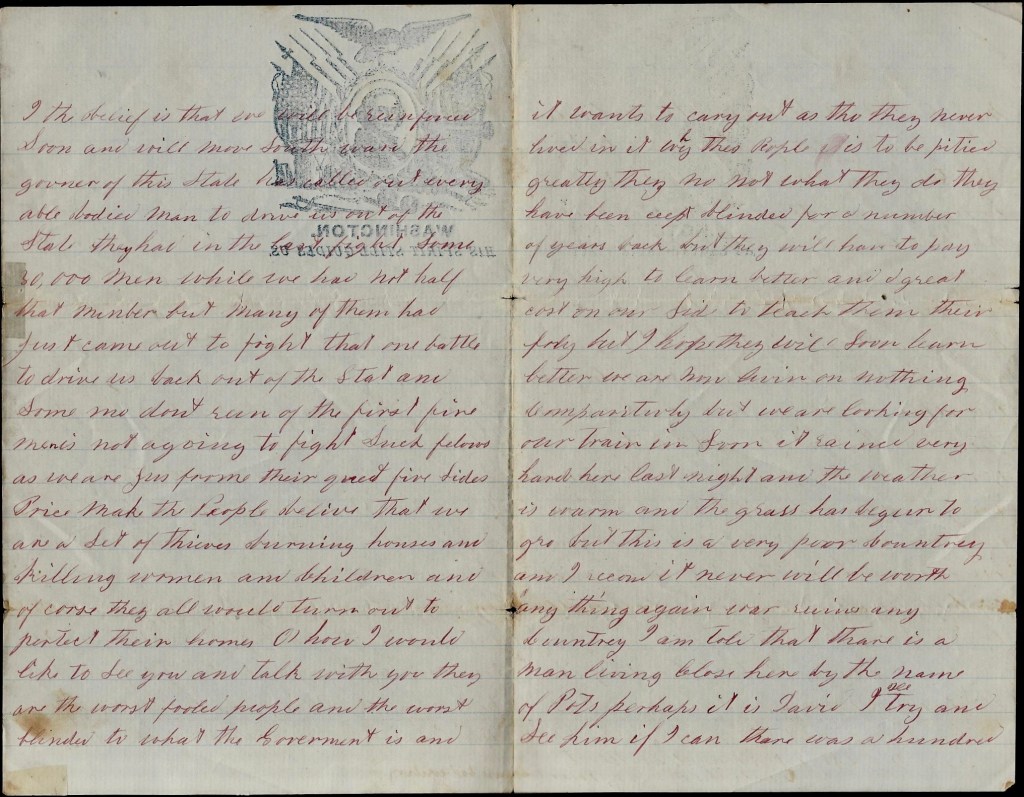 WASHINGTON.
HIS SPIRIT STILL GUIDES US.
I the belief is that we will be reinforced
Soon and will move South ward the
govner of this State has called out every
able bodied man to drive us out of the
State they had in the last fight Some
30,000 men while we had not half
that number but many of them had
Just came out to fight that one battle
to drive us back out of the Stat and
Some me dont run of the first fire
men is not agoing to fight Such felows
as we are Jus frome their five Sides
Price make th People belive that we
are a Set of thieves burning houses and
killing women and Children and
of corse they all would turn out to
pertect their homes O how I would
like to See you and talk with you they
are the worst fooled people and the worst
blinded to what the Goverment is and
it wants to cary out as tho they never
lived in it this People is to be pitied
greatly they no not what they do they
have been cept blinded for a number
of years back but they will have to pay
very high to learn better and great
cost on our Side to teach them their
foly but I hope they will Soon learn
better we are now livin on nothing
Comparitivly but we are looking for
our train in Soon it rained very
hard here last night and the weather
is warm and the grass has begun to
gro but this is a very poor Countrey
and I recon it never will be worth
any thing again war ruins any
Countrey I am told that thare is a
man living Close her by the name
of Pots perhaps it is David I will try and
See him if I can thare was a hundred